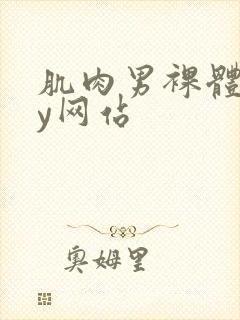 肌肉男裸體
y网佔
奥姆里